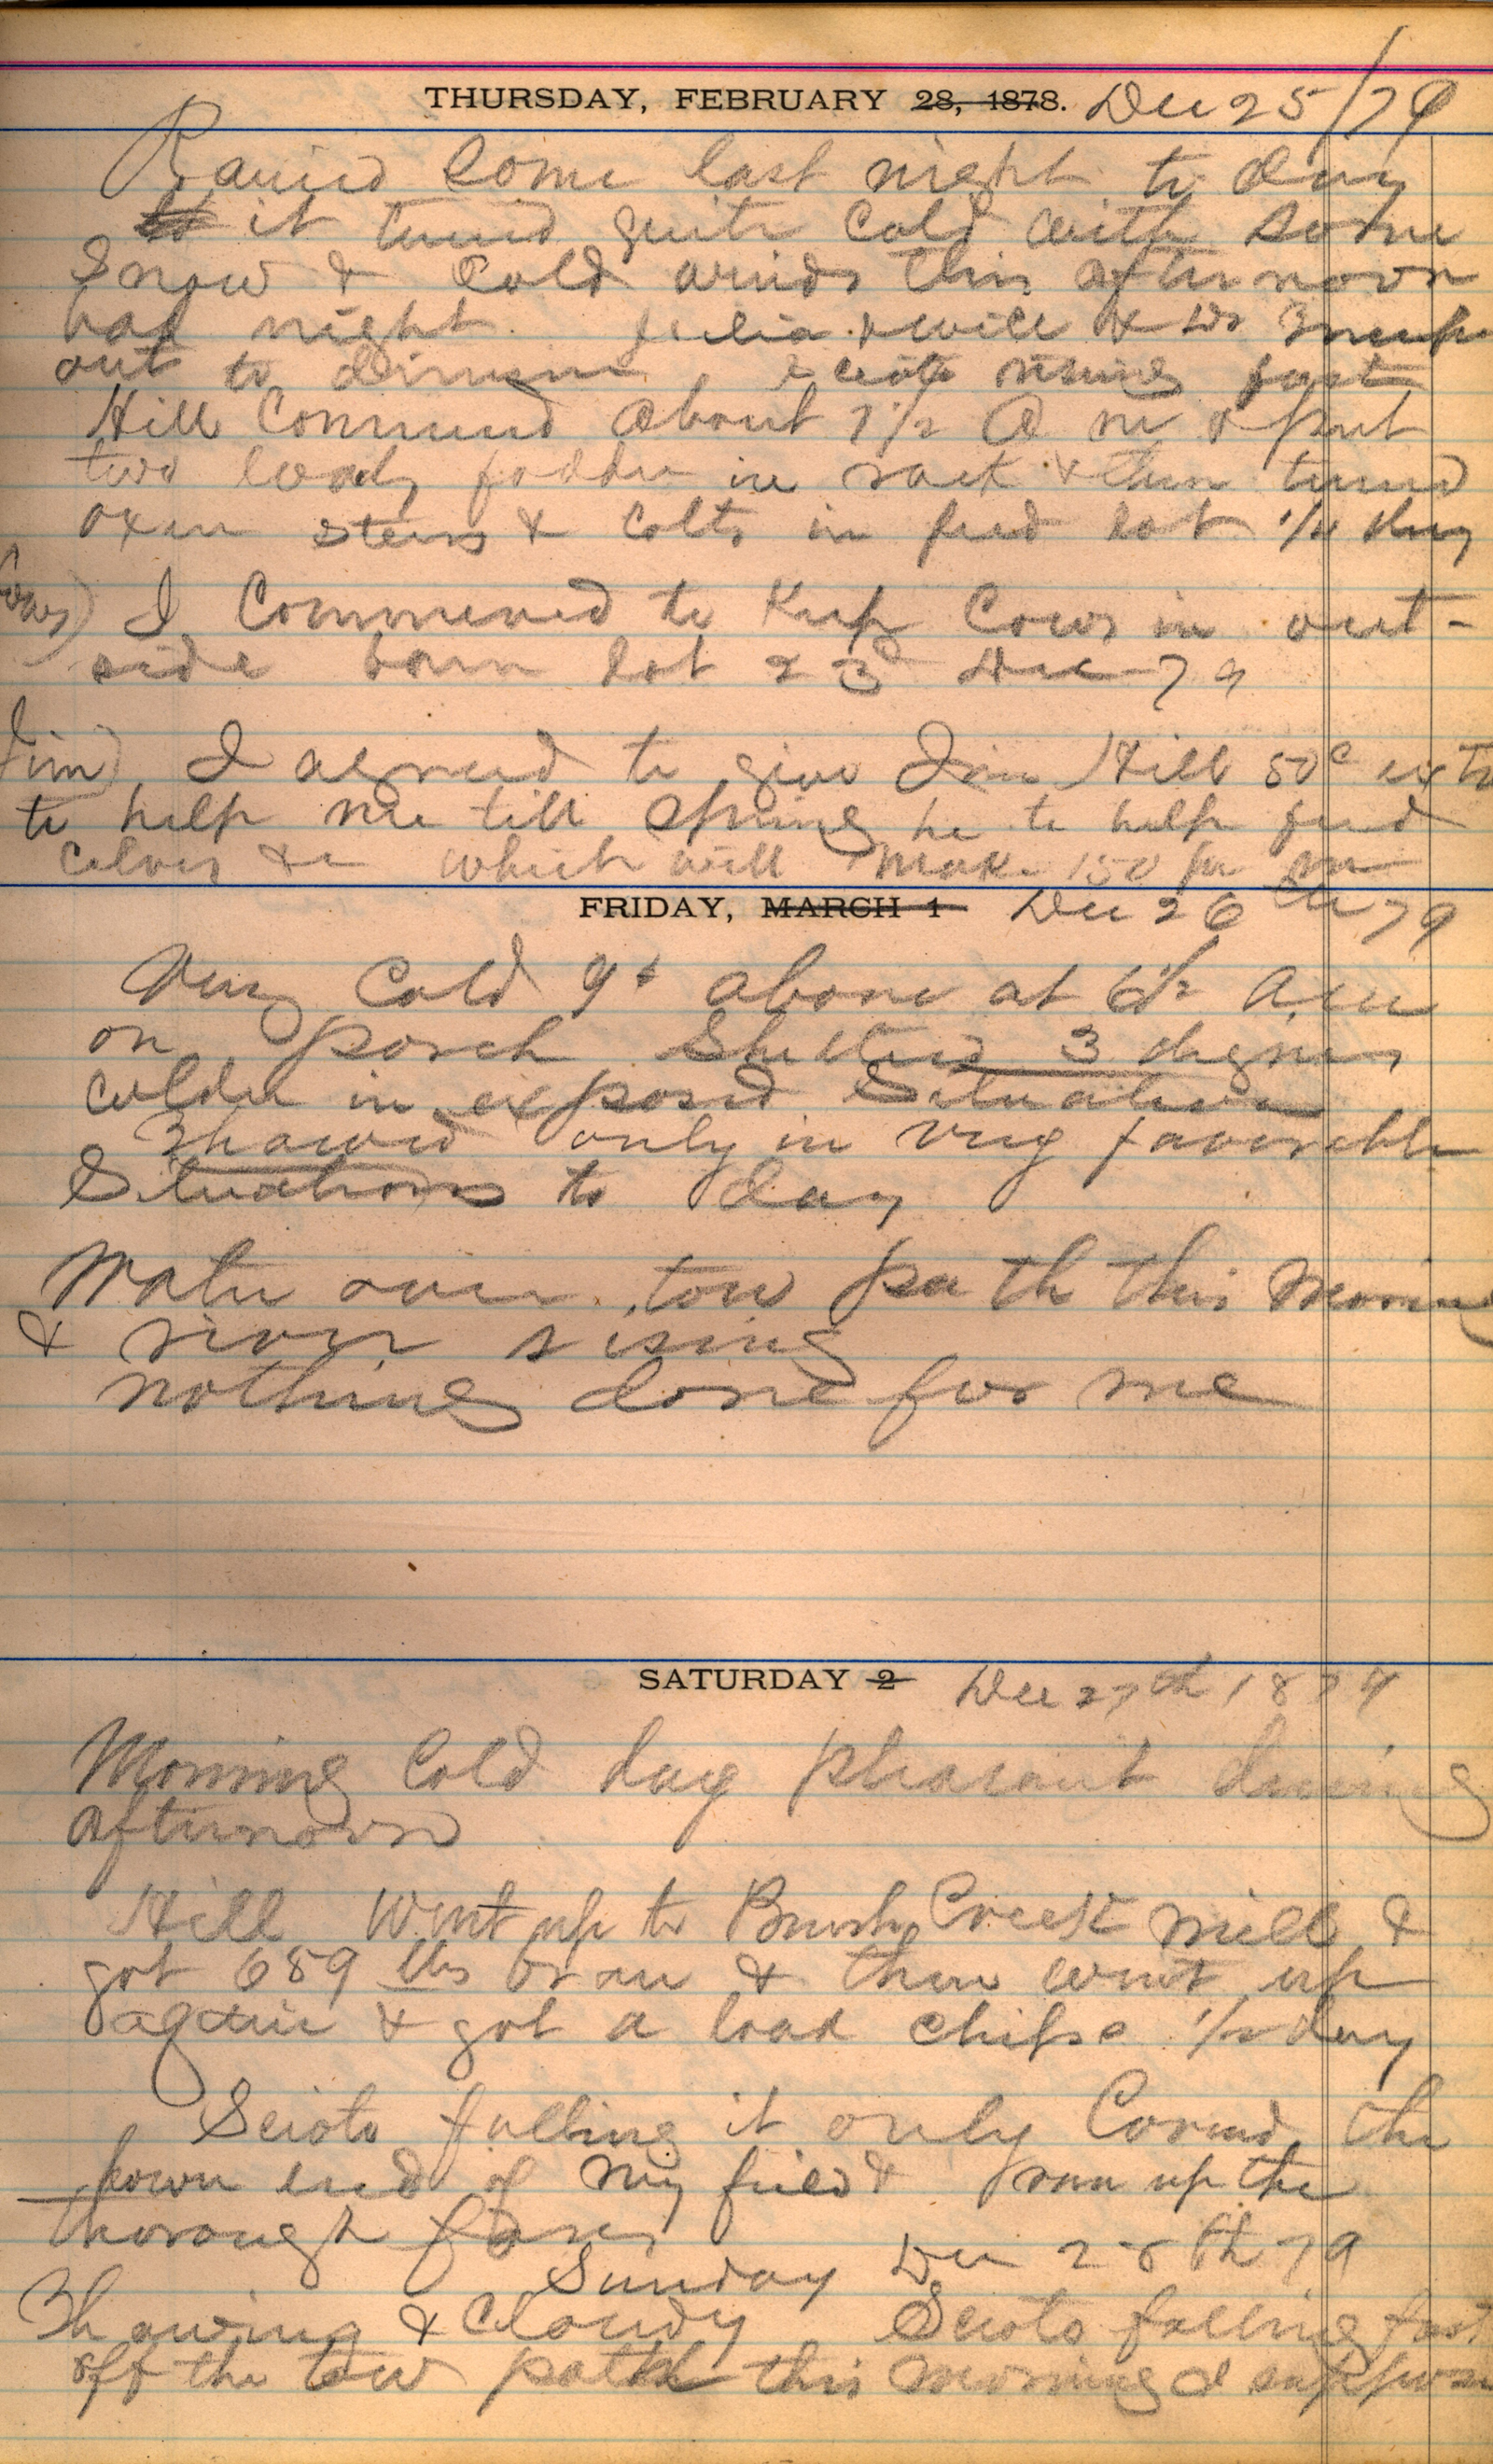 THURSDAY, FEBRUARY 28, 1878. Dec 25/79
Rained some last night to day
it turnd quite cold with some
snow & Cold winds this afternoon
bad night. Julia & will & Dr
out to dinner. Scioto rising fast
Hill Commencd about 7 1/2 A m & put
two loads fodder in rack & then turnd
oxen steers & Colts in feed lot 1/4 day
Cows) I Commenced to Keep Cows in out-
side barn lot 23d Dec 79
Jim) I agreed to give Jim Hill 50c extra
to help me till Spring he to help feed
calves &c which will make 150 per
FRIDAY, MARCH 1 Dec 26th 79
Very Cold 9° above at 6 1/2 A.m
on porch Shelterd 3 degrees
colder in exposd Situation
Thawed only in very favorable
Situations to day
Water over tow path this Morning
& river rising
nothing done for me
SATURDAY 2 Dec 27th 1879
Morning Cold day pleasant during
afternoon
Hill Went up to Brush Creek mill &
got 689 lbs bran & then went up
again & got a load chips 1/2 day
Scioto falling it only Coverd the
lower end of my field & run up the
thorough fares
Sunday Dec 28th 79
Thawing & Cloudy Scioto falling fast
off the tow path this morning &